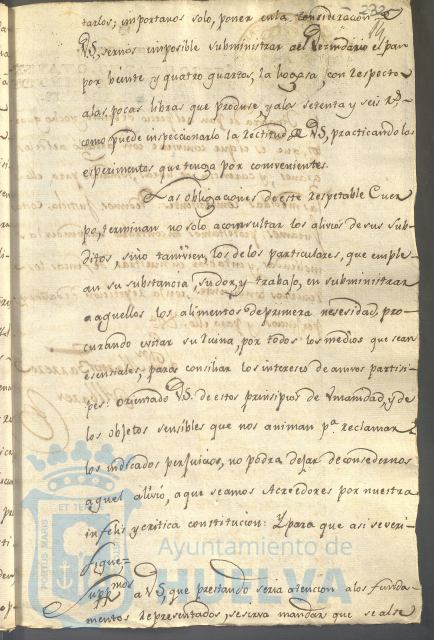 232
tarlos; importanos solo, poner en la consideracion de
VS. sernos imposible subministrar a el Vezindario el pan
por veinte y quatro quartos, la hogasa, con respecto
a las pocas libras que produse y a los setenta y seis rs.
como puede inspeccionarlo la rectitud de VS, practicando los
esperimentos que tenga por convenientes.
Las obligaciones de este respetable Cuer
po, terminan no solo a consultar los alivios de sus sub-
ditos sino tamvien, los de los particulares, que emple-
an su substancia, sudor, y trabajo, en subministrar
a aquellos los alimentos de primera nesesidad, pro-
curando evitar su ruina, por todos los medios que sean
esensiales, para consiliar los intereses de amvos partisi-
pes: orientado VS. de estos prinsipios de Vmanidad, y de
los objetos sensibles que nos animan pa. reclamar
los indicados perjuicios, no podra dejar de consedernos
aquel alivio, a que seamos Acreedores por nuestra
infelis y critica constitucion: Y para que asi se veri-
fique=
Suppmos a VS, que prestando seria atencion a los funda-
mentos representados, se sirva mandar que se alse
Ayuntamiento de
HUELVA
PORTUS MARIS
ET TERRAE